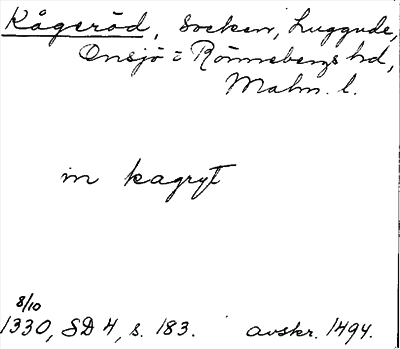 Kågeröd, socken, Luggude,
Onsjö = Rönnebergs hd,
Malm. l.
in kagryt
8/10
1330, SD 4, s. 183. avskr. 1494.